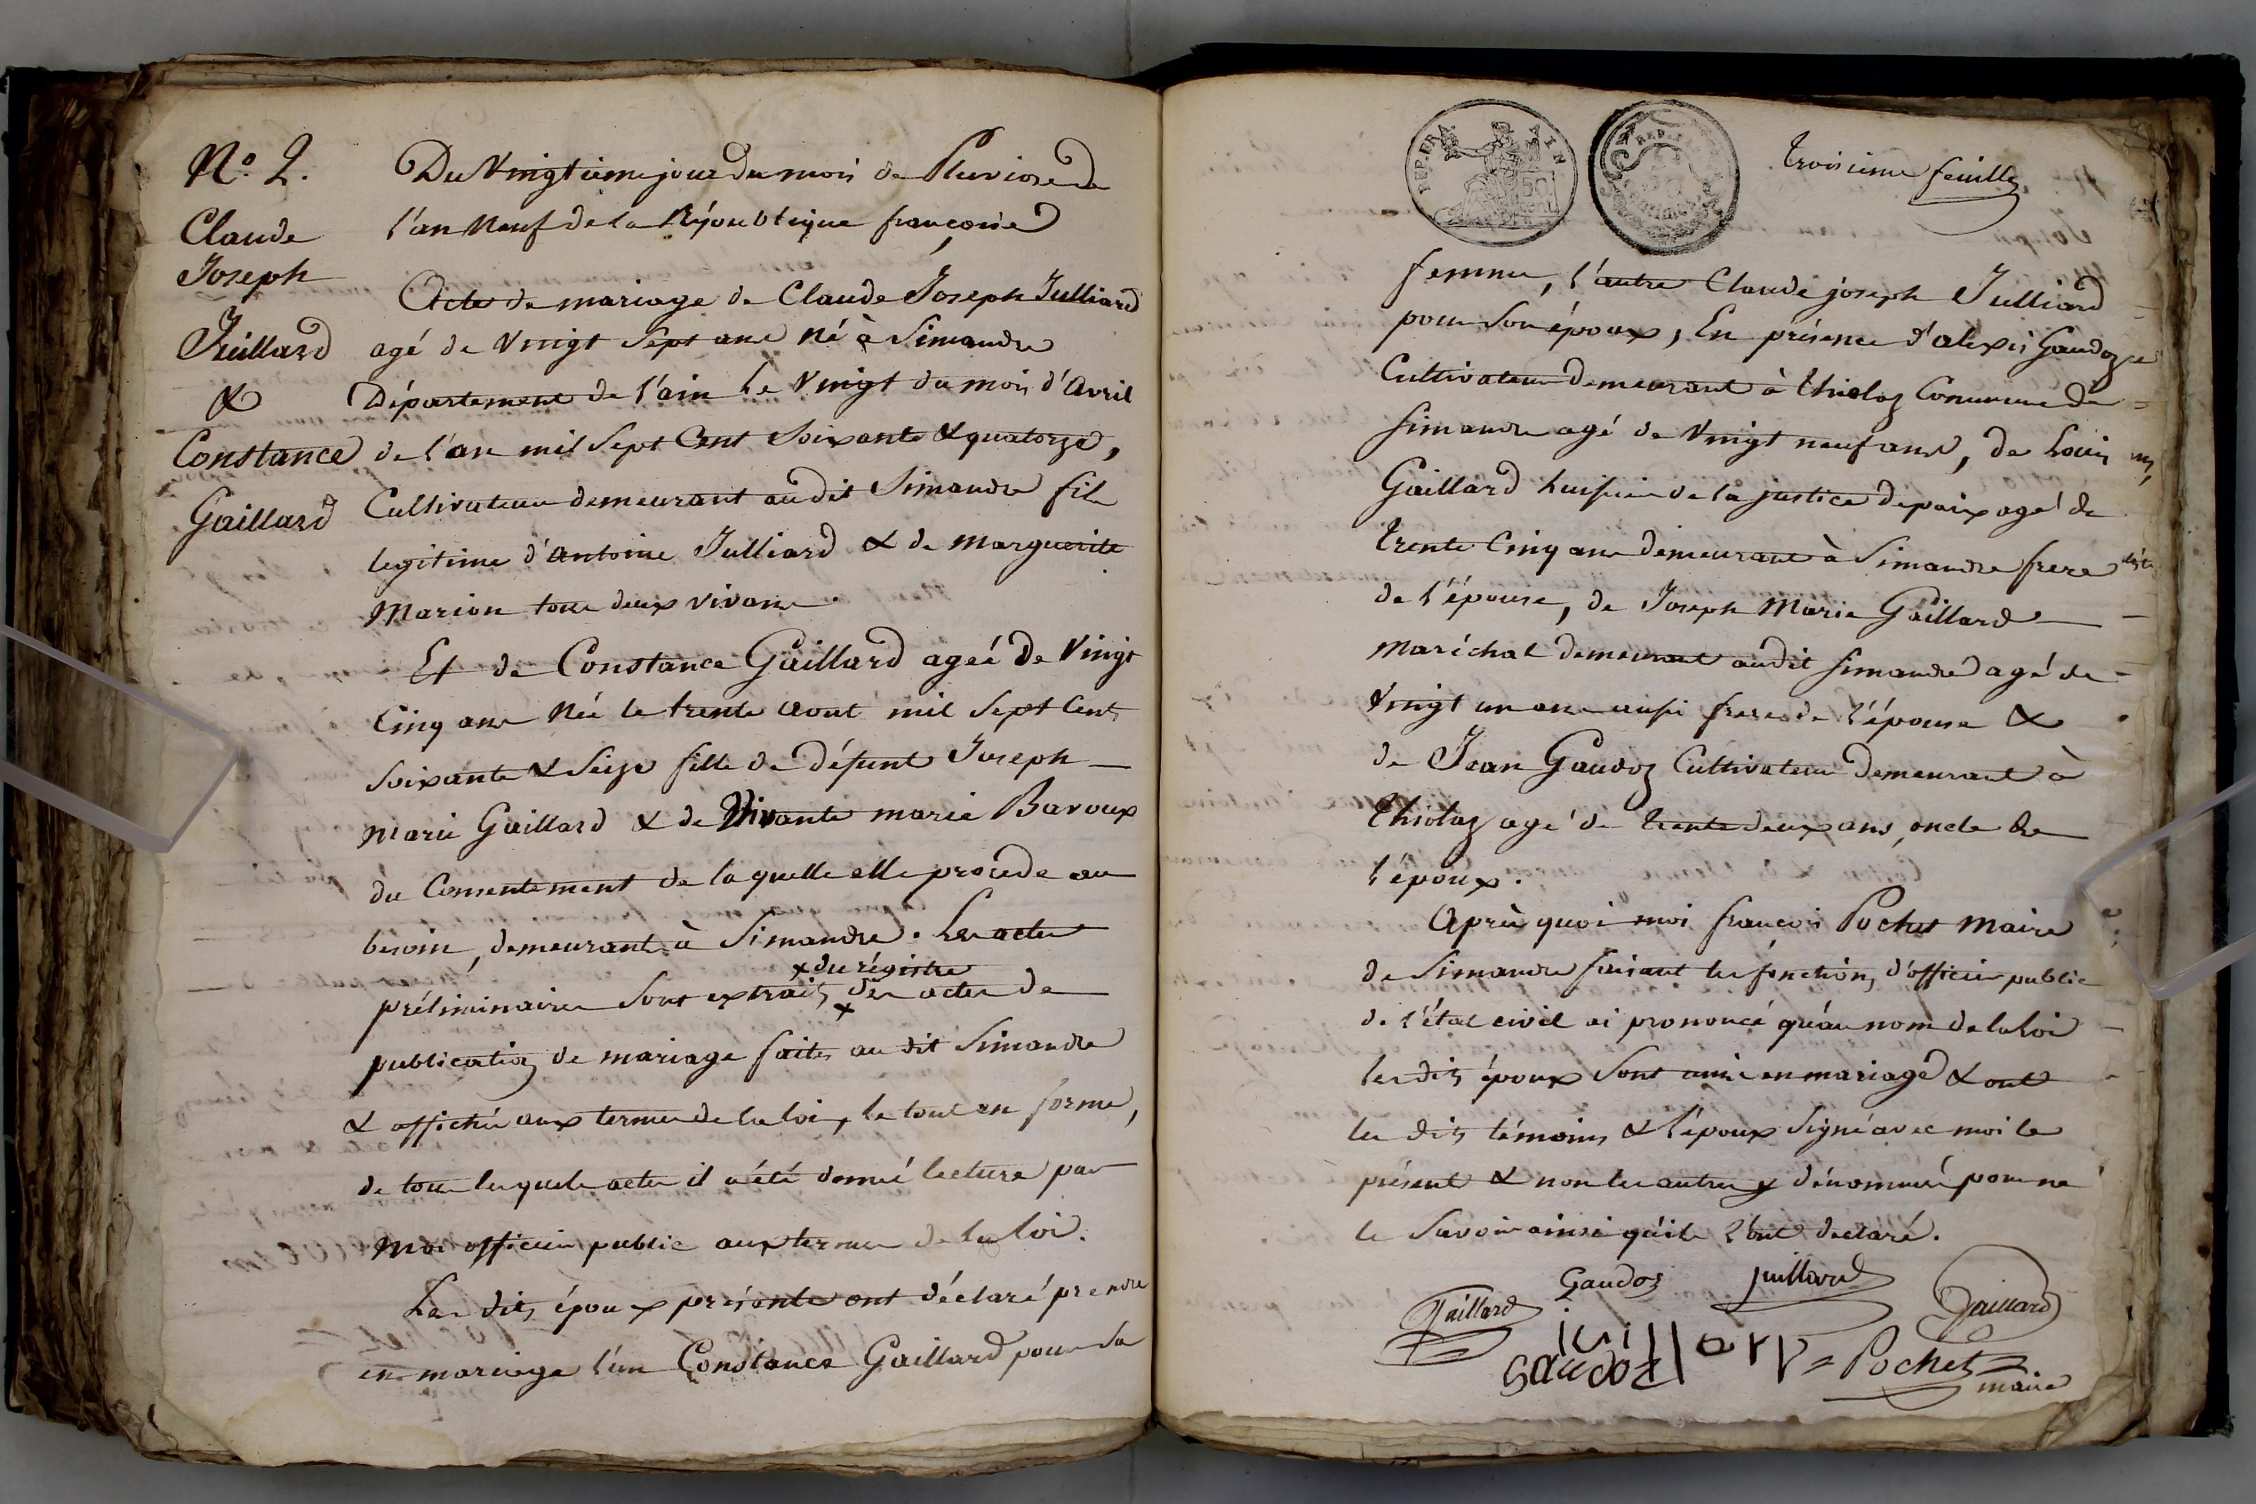 N.° 2.
Claude
Joseph
Juillard
&
Constance
Gaillard
Du Vingtieme jour du mois de Pluviose de
l'an Neuf de la République françoise
Acte de mariage de Claude Joseph Julliard
agé de Vingt Sept ans Né à Simandre
Département de l'ain le Vingt du mois d'Avril
de l'an mil Sept Cent Soixante & quatorze,
Cultivateur demeurant audit Simandre fils
legitime d'antoine Julliard & de Marguerite
Marion tous deux vivans.
Et de Constance Gaillard ageé de Vingt
Cinq ans Née le trente Aout mil Sept Cent
Soixante & Seize fille de défunt Joseph
Marie Gaillard & de Vivante marie Baroux
du Consentement de laquelle elle procede au
besoin, demeurant à Simandre. Les actes
x du régistre
préliminaires Sont extraits x des actes de
publication de mariage faites au dit Simandre
& affichés aux termes de la loi, le tout en forme,
de tous lesquels actes il a été donné lecture par
Moi officier public aux termes de la loi.
Les dits époux présents ont déclaré prendre
en mariage l'un Constance Gaillard pour Sa
REP. FRA. AIN
50
REP.
troisieme feuille
femme, l'autre Claude joseph Julliard
pour Son époux, En présence d'alexis Gaudoz
Cultivateur demeurant à thiolaz Commune de
Simandre agé de Vingt neuf ans, de Louis
Gaillard huissier de la justice de paix agé de
trente Cinq ans demeurant à Simandre frere
de l'épouse, de Joseph Marie Gaillard
Maréchal demeurant audit Simandre agé de
Vingt un ans aussi frere de l'épouse &
de Jean Gaudoz Cultivateur demeurant à
thiolaz agé de trente deux ans, oncle de
l'époux.
Après quoi moi françois Pochet Maire
de Simandre faisant les fonctions d'officier public
de l'état civil ai prononcé qu'au nom de la loi
les dits époux Sont unis en mariage & ont
les dits témoins & l'époux Signé avec moi le
présent & non les autres y dénommés pour ne
le Savoir ainsi qu'ils l'ont declaré.
Gaudoz juilliard
Gaillard Gaillard
juillard
Gaudoz = Pochet =
maire